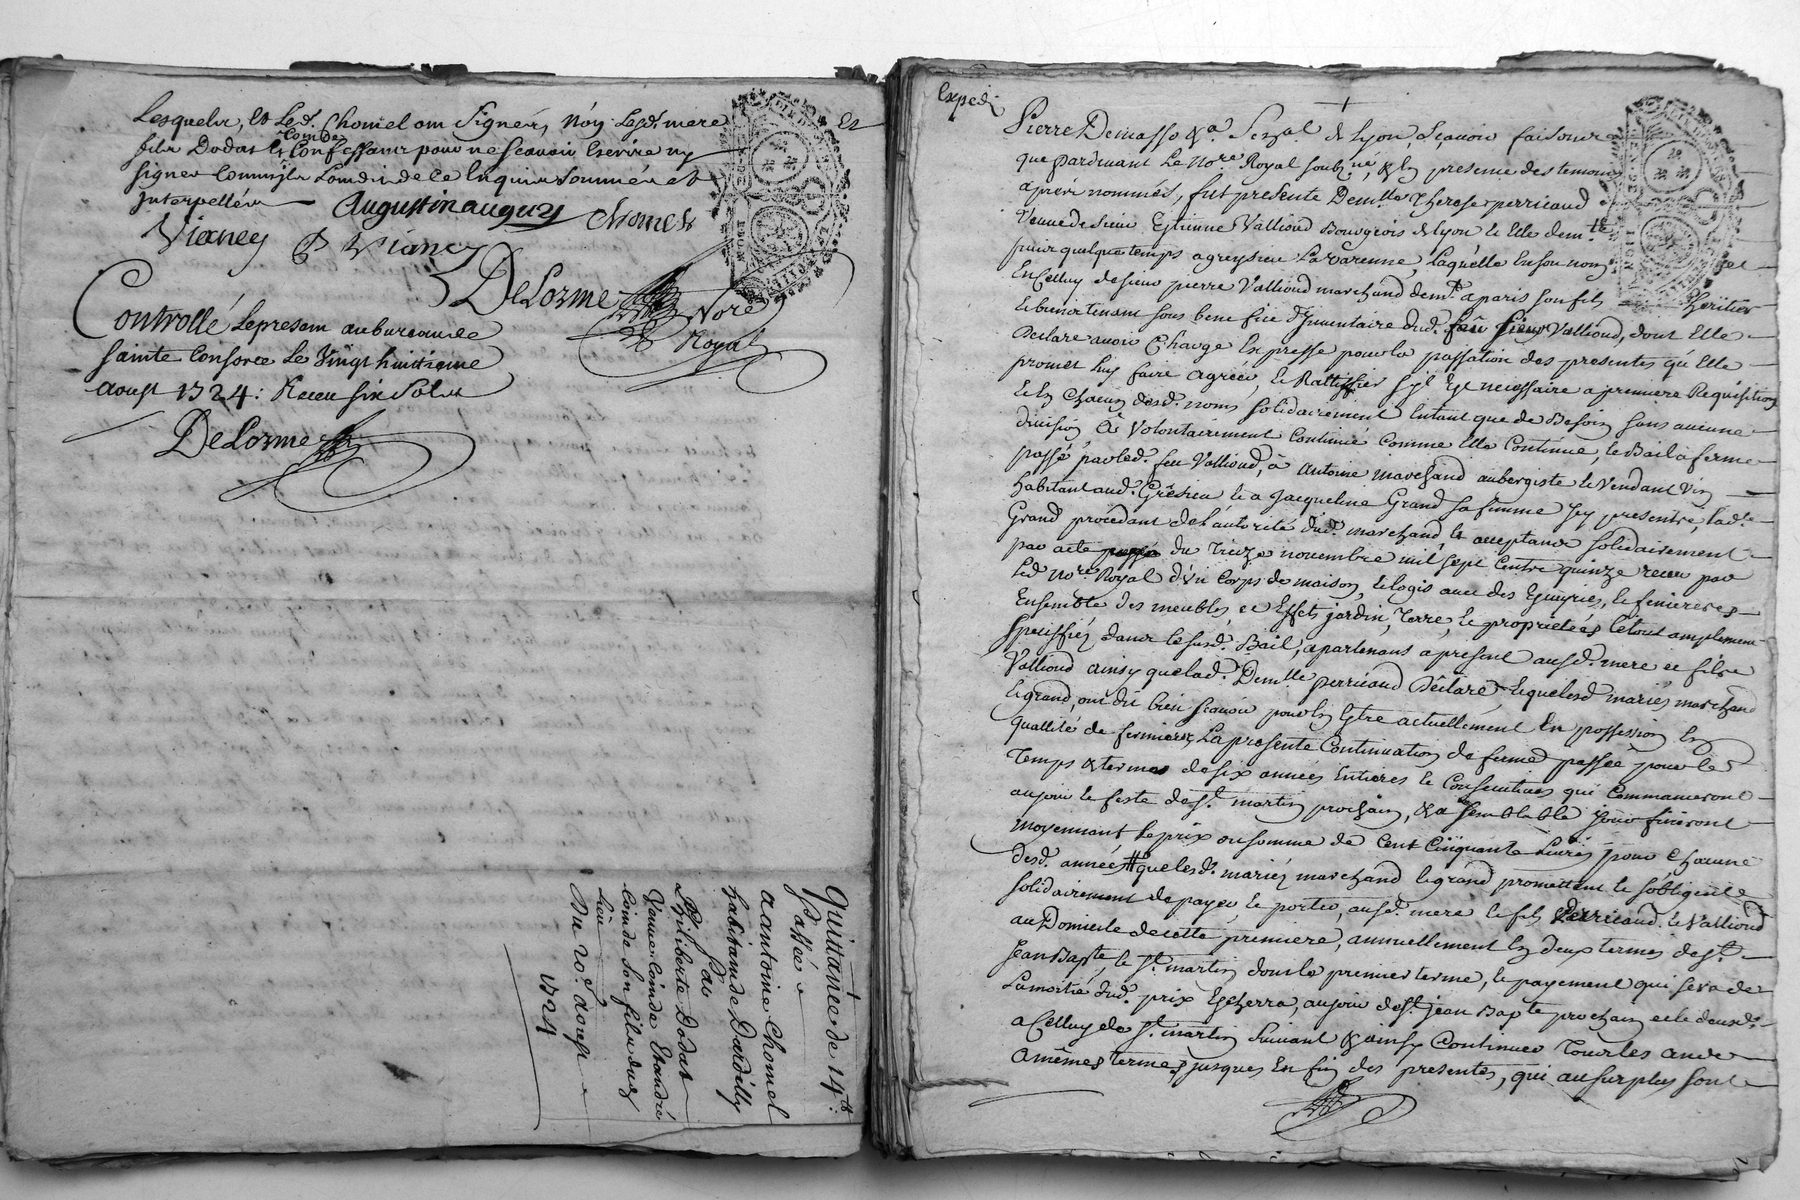 Lesquelx, et Led. Chomel ont signéz, Non Lesd. mere Et
fils Dodat et Coindre Confessant pour ne scavoir Escrire ny
signer Comm'ilz L'ont dit de ce Enquis sommés et
Interpellés
Augustin auguy chomel
Vianey P Vianey
DeLorme Nore
Royal
Controllé Le present au bureau de
sainte Consorce Le Vingt huitieme
aoust 1724: Receu six solz
DeLorme
Quittance de 14tt:
Passée
a antoine Chomel
habitant de Dardilly
Par
Philiberte Dodat
Veuve Coinde Et andré
Coinde son fils dud.
lieu
Du 20e. aoust
1724
Exped.
Pierre Demasso &a. Senzal de Lyon, Sçavoir faisons
que pardevant Le Nore. Royal soub.né, & En presence des temoins
aprés nommés, fut presente Demlle Therese perricaud
Veuve de sieur Estienne Vallioud Bourgeois de Lyon et Elle demte.
puis quelque temps a greysieu La Varenne, Laquelle En son nom et
En Celluy de sieur pierre Vallioud marchand demt. a paris son fils heritier
et bientenant sous bene fice d'Inventaire dud. feu sieur Vallioud, dont Elle
Declare avoir Charge Expresse pour la passation des presentes qu'Elle
promet Luy faire agréer, et Rattiffier s'yl Est necessaire a premiere Requisition
et En Chacun desd. noms solidairement Entant que de Besoin sans aucune
division, A Volontairement Continué Comme Elle Continue, le Bail a ferme
passé par led. feu Vallioud, à antoine marchand aubergiste et Vendant Vin
habitant aud. Grésieu et a Jacqueline Grand sa femme Icy presents, lad.te
Grand procedant de l'autorité dud. marchand et acceptans solidairement
par acte du Treize novembre mil sept Cents quinze receu par
Led. Nore. Royal d'Un Corps de maison, et logis avec des Ecuyries, et fenieres
Ensemble des meubles, et Effets jardin, Terre, et proprietées le tout amplement
speciffiéz dans le susd. Bail, apartenans a present ausd. mere et fils
Vallioud ainsy que lad. Demlle perricaud Declare, et que lesd. mariés marchand
et grand, ont dit bien scavoir pour En Estre actuellement En possession En
quallité de fermiers, La presente Continuation de ferme passée pour le
Temps & terme de six années Entieres et Consecutives qui Commanceront
au jour et feste de St. martin prochain, & a semblable jour finiront
moyennant Le prix ou somme de Cent Cinquante Livres pour Chacune
desd. années que lesd. mariéz marchand et grand promettent et s'obligent
solidairement de payer, et porter, ausd. mere et fils Perricaud et Vallioud
au Domicile de cette premiere, annuellement En deux termes de St.
Jean Bapte, et St. martin dont le premier terme, et payement qui sera de
La moitié dud. prix Escherra, au jour de St. Jean Bapte prochain et le deusd.
a Celluy de St. martin suivant & ainsy Continuer Tous les ans
a mêmes termes, jusques En fin des presentes, qui au surplus sont